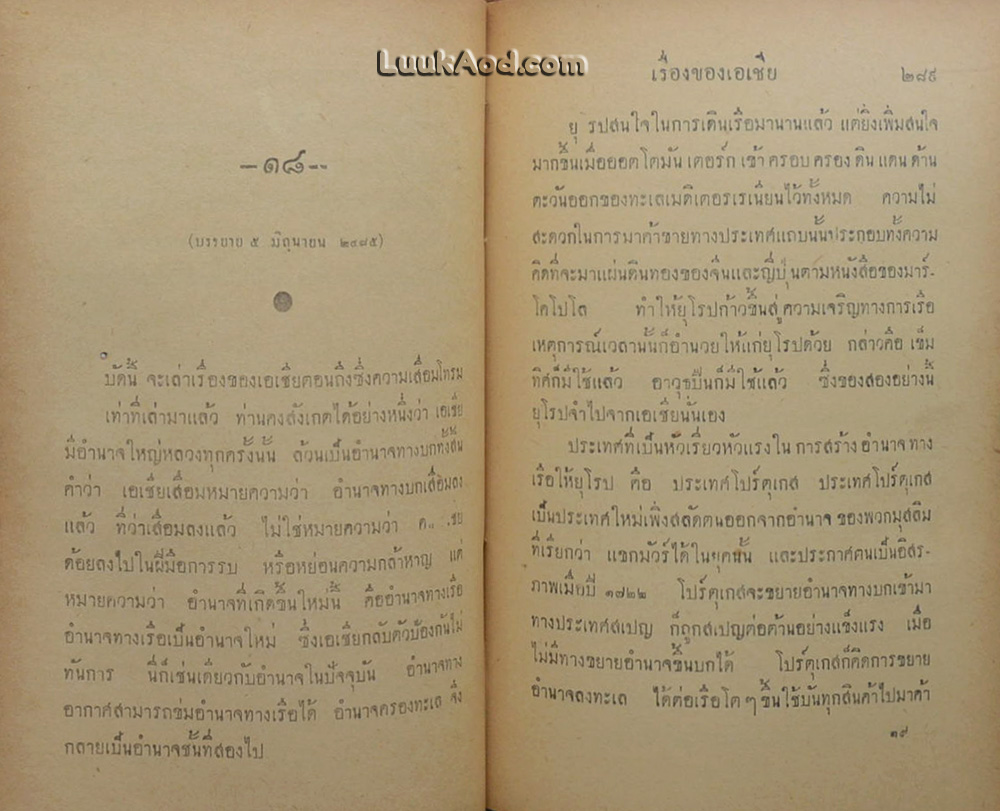 LuukAod.com
–๑๘–
(บรรยาย ๕ มิถุนายน ๒๔๘๕)
บัดนี้ จะเล่าเรื่องของเอเชียตอนถึงซึ่งความเสื่อมโทรม
เท่าที่เล่ามาแล้ว ท่านคงสังเกตได้อย่างหนึ่งว่า เอเชีย
มีอำนาจใหญ่หลวงทุกครั้งนั้น ล้วนเป็นอำนาจทางบกทั้งสิ้น
คำว่า เอเชียเสื่อมหมายความว่า อำนาจทางบกเสื่อมลง
แล้ว ที่ว่าเสื่อมลงแล้ว ไม่ใช่หมายความว่า
ด้อยลงไปในฝีมือการรบ หรือหย่อนความกล้าหาญ แต่
หมายความว่า อำนาจที่เกิดขึ้นใหม่นี้ คืออำนาจทางเรือ
อำนาจทางเรือเป็นอำนาจใหม่ ซึ่งเอเชียกลับตัวป้องกันไม่
ทันการ นี่ก็เช่นเดียวกับอำนาจในปัจจุบัน อำนาจทาง
อากาศสามารถข่มอำนาจทางเรือได้ อำนาจครองทะเล จึ่ง
กลายเป็นอำนาจชั้นที่สองไป
เรื่องของเอเชีย ๒๘๙
ยุ รปสนใจในการเดินเรือมานานแล้ว แต่ยิ่งเพิ่มสนใจ
มากขึ้นเมื่อออตโตมันเตอร์กเข้าครอบครองดินแดนด้าน
ตะวันออกของทะเลเมดิเตอรเรเนียนไว้ทั้งหมด ความไม่
สะดวกในการมาค้าขายทางประเทศแถบนั้นประกอบทั้งความ
คิดที่จะมาแผ่นดินทองของจีนและญี่ปุ่นตามหนังสือของมาร์-
โคโปโล ทำให้ยุโรปก้าวขึ้นสู่ความเจริญทางการเรือ
เหตุการณ์เวลานั้นก็อำนวยให้แก่ยุโรปด้วย กล่าวคือ เข็ม
ทิศก็มีใช้แล้ว อาวุธปืนก็มีใช้แล้ว ซึ่งของสองอย่างนี้
ยุโรปจำไปจากเอเชียนั่นเอง
ประเทศที่เป็นหัวเรี่ยวหัวแรงในการสร้างอำนาจทาง
เรือให้ยุโรป คือ ประเทศโปร์ตุเกส ประเทศโปร์ตุเกส
เป็นประเทศใหม่เพิ่งสลัดตนออกจากอำนาจของพวกมุสลิม
ที่เรียกว่า แขกมัวร์ได้ในยุคนั้น และประกาศตนเป็นอิสร-
ภาพเมื่อปี ๑๗๒๒ โปร์ตุเกสจะขยายอำนาจทางบกเข้ามา
ทางประเทศสเปญ ก็ถูกสเปญต่อต้านอย่างแข็งแรง เมื่อ
ไม่มีทางขยายอำนาจขึ้นบกได้ โปร์ตุเกสก็คิดการขยาย
อำนาจลงทะเล ได้ต่อเรือโตๆขึ้นใช้บันทุกสินค้าไปมาค้า
๑๙